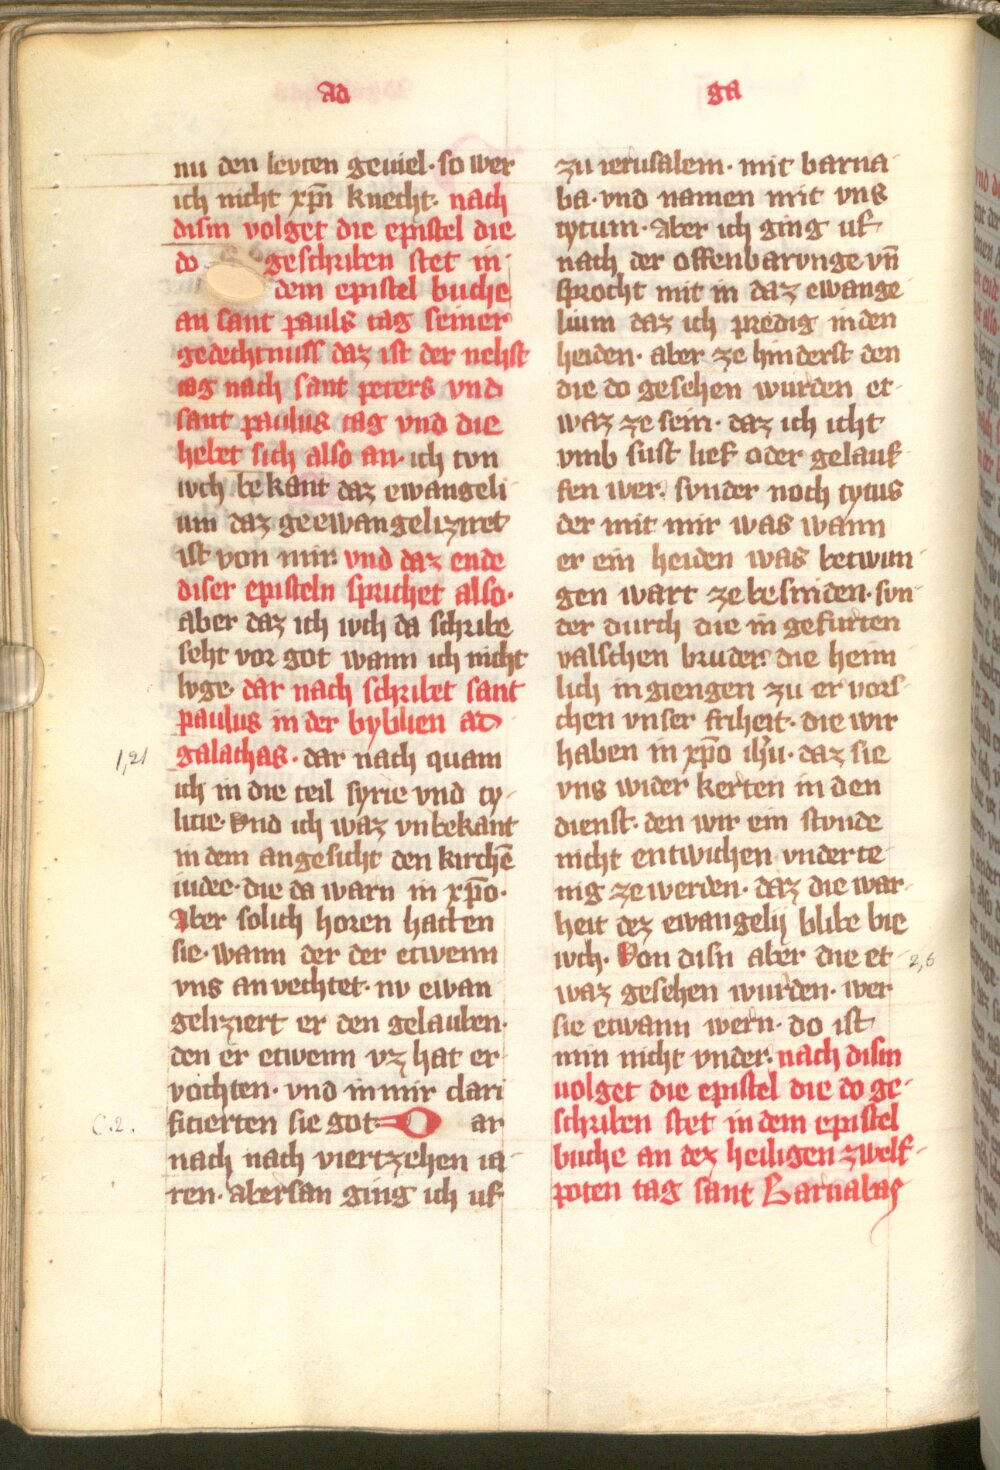 ad
ga
nu den leyten geuiel · so wer
ich nicht xp̄i knecht · nach
disin volget die epistel die
do geschriben stet in
dem epistel buche
an sant pauls tag seiner
gedechtnuss daz ist der nehst
tag nach sant peters vnd
sant paulus tag vnd die
hebet sich also an · ich tvn
iwch bekant daz ewangeli
um daz geewangeliziret
ist von mir · vnd daz ende
diser episteln sprichet also ·
aber daz ich iwch da schribe
seht vor got wann ich nicht
lyge · dar nach schribet sant
paulus in der byblien ad
galathas · dar nach quam
1,21
ich in die teil syrie vnd cy
licie · vnd ich waz vnbekant
in dem angesicht den kirchē
iudee · die da warn in xp̄o ·
aber solich horen hatten
sie · wann der der etwenn
vns anvechtet · nv ewan
geliziert er den gelauben ·
den er etwenn vz hat er
vochten · vnd in mir clari
ficierten sie got · D ar
C. 2.
nach nach viertzehen ia
ren · abersan ging ich uf
zu ierusalem · mit barna
ba · vnd namen mit vns
tytum · aber ich ging uf
nach der offenbarvnge vn̄
sprocht mit in daz ewange
lium daz ich predig in den
heiden · aber ze hinderst den
die do gesehen wurden et
waz ze sein · daz ich icht
vmb sust lief oder gelauf
fen wer · synder noch tytus
der mit mir was wann
er ein heiden was betwun
gen wart ze besniden · svn
der durch die in gefurten
valschen bruder · die heim
lich in giengen zu er vors
chen vnser friheit · die wir
haben in xp̄o ih̄u · daz sie
vns wider kerten in den
dienst · den wir ein stvnde
nicht entwichen vnderte
nig ze werden · daz die war
heit dez ewangelij blibe bie
iwch · Von disn aber die et
2,6
waz gesehen wurden · wer
sie etwann wern · do ist
min nicht vnder · nach disin
uolget die epistel die do ge
schriben stet in dem epistel
buche an dez heiligen zwelf
poten tag sant Barnabas